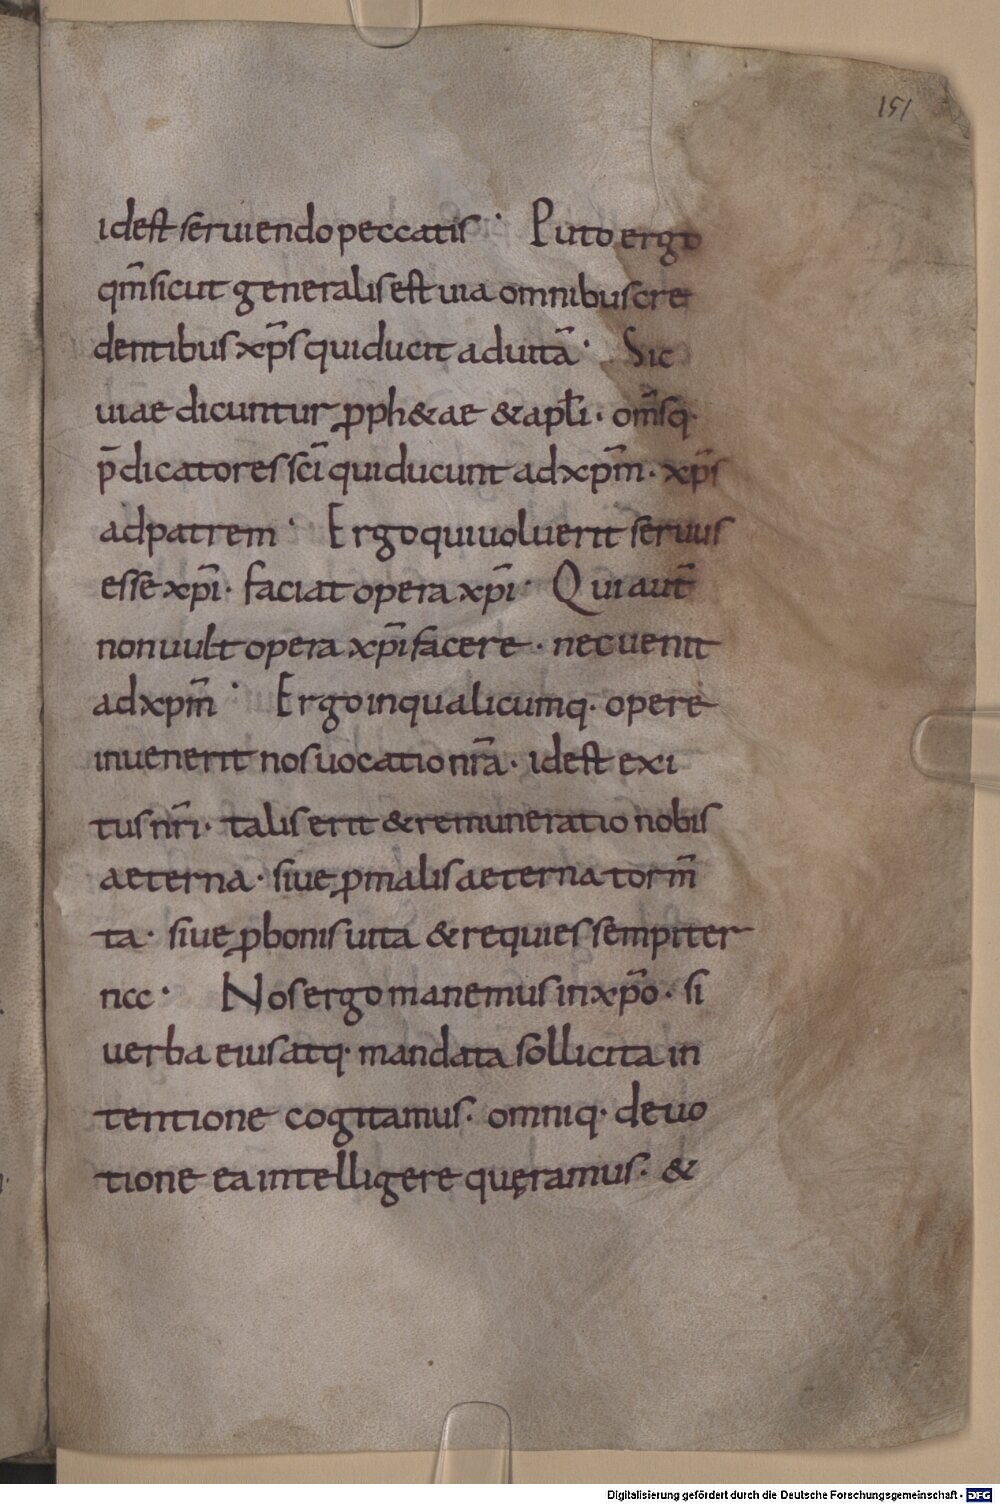 151
id est seruiendo peccatis· Puto ergo
qm̄ sicut generalis est uia omnibus cre
dentibus xp̄s qui ducit ad uitā· Sic
uiae dicuntur ꝓph&ae & apłi· om̄sq·
p̄dicatores sc̄i qui ducunt ad xp̄m· xp̄s
ad patrem· Ergo qui uoluerit seruus
esse xp̄i· faciat opera xp̄i· Qui aut̄
non uult opera xp̄i facere· nec uenit
ad xp̄m· Ergo in qualicumq· opere
inuenerit nos uocatio nr̄a· id est exi
tus nr̄i· talis erit & remuneratio nobis
aeterna· siue ꝓ malis aeterna torm̄
ta· siue ꝓ bonis uita & requies sempiter
ncc· Nos ergo manemus in xp̄o· si
uerba eius atq· mandata sollicita in
tentione cogitamus· omniq· deuo
tione ea intelligere quęramus· &
Digitalisierung gefördert durch die Deutsche Forschungsgemeinschaft - DFG